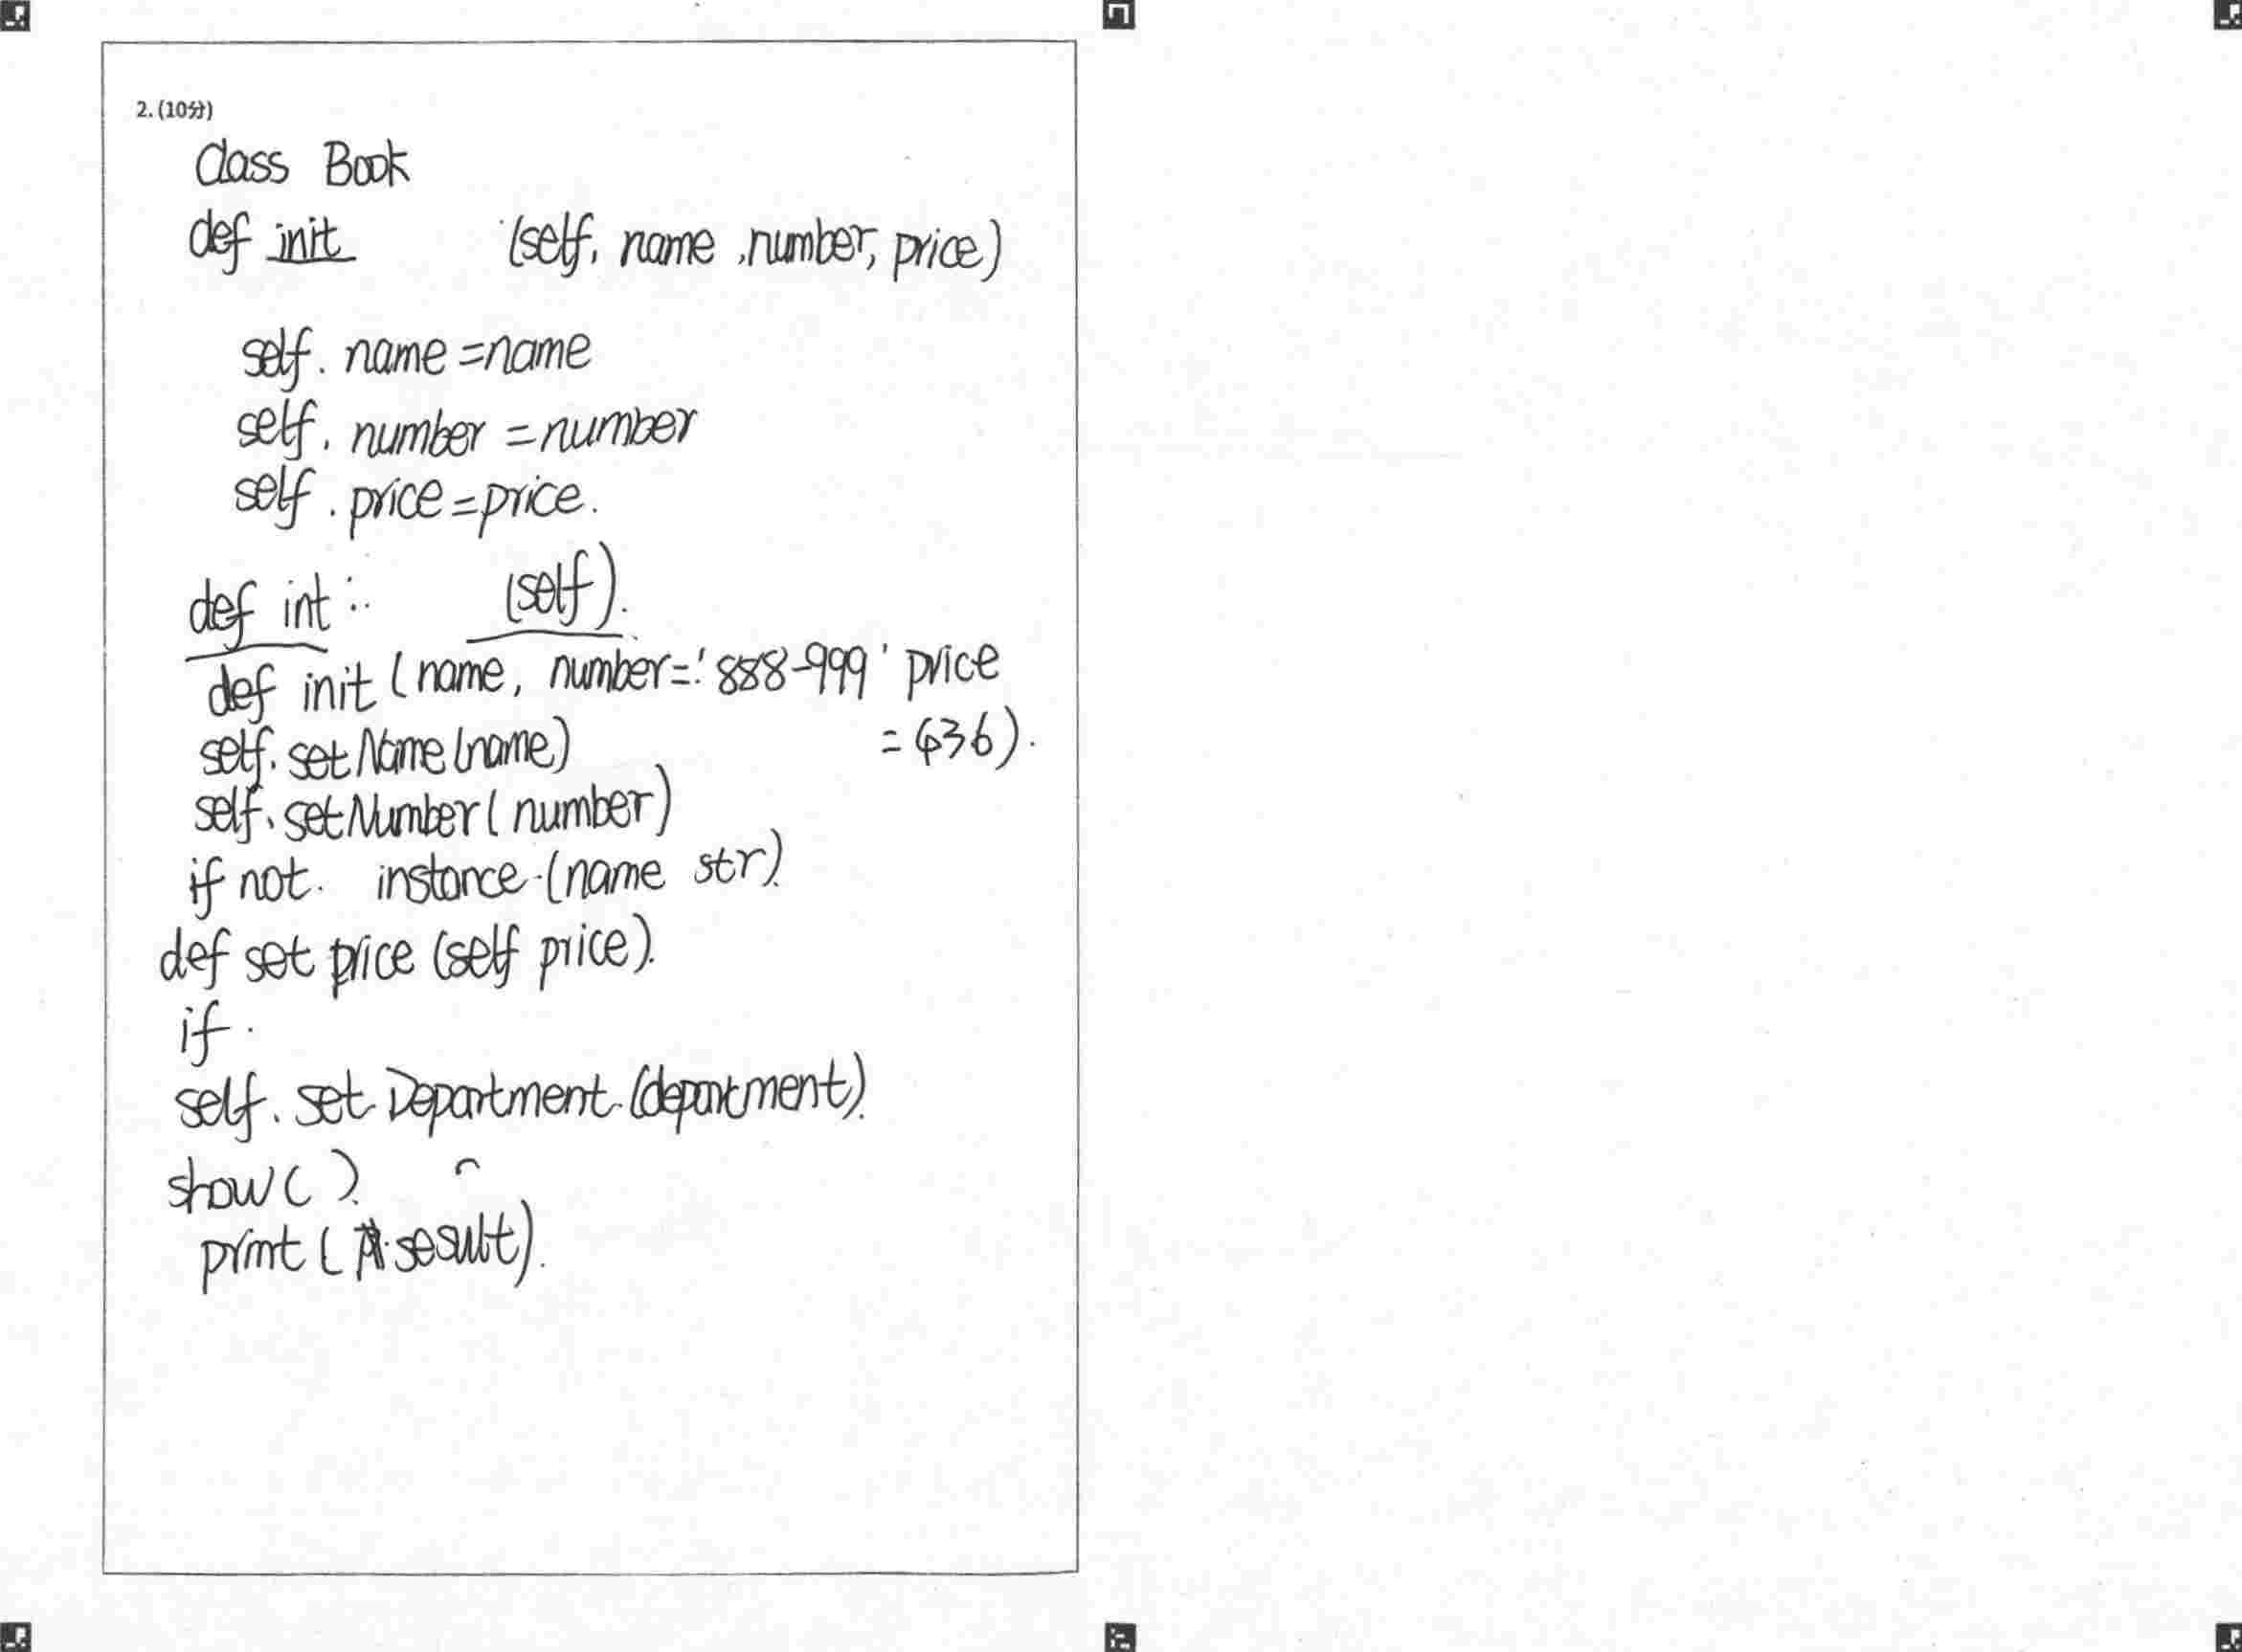 2. (10分)
Class Book
def init (self, name, number, price)
self. name = name
self. number = number
self. price = price.
def int : (self).
def init (name, number = '888-999' price
= 636).
self. set Name (name)
self. set Number ( number)
if not. instance (name str).
def set price (self price).
if.
self. set Department (department).
show ( ).
print ( sesult).